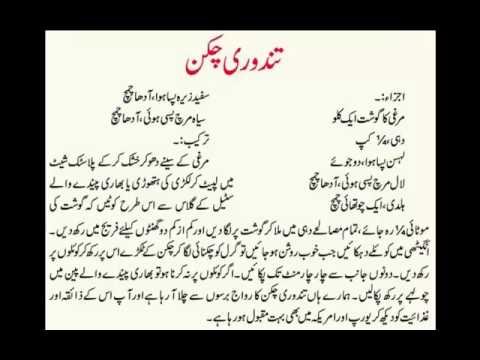 تندوری چکن
اجزاء:۔
مرغی کا گوشت ایک کلو
دہی، ¼ کپ
لہسن پسا ہوا، دو جوئے
لال مرچ پسی ہوئی، آدھا چمچ
ہلدی، ایک چوتھائی چمچ
سفید زیرہ پسا ہوا، آدھا چمچ
سیاہ مرچ پسی ہوئی، آدھا چمچ
ترکیب:۔
مرغی کے سینے دھو کر خشک کر کے پلاسٹک شیٹ
میں لپیٹ کر لکڑی کی ہتھوڑی یا بھاری پیندے والے
سٹیل کے گلاس سے اس طرح کوٹیں کہ گوشت کی
موٹائی ¼ رہ جائے، تمام مصالحے دہی میں ملا کر گوشت پر لگا دیں اور کم از کم دو گھنٹوں کیلئے فریج میں رکھ دیں۔
انگیٹھی میں کوئلے دہکائیں جب خوب روشن ہو جائیں تو گرل کو چکنائی لگا کر چکن کے ٹکڑے اس پر رکھ کر کوئلوں پر
رکھ دیں۔ دونوں جانب سے چار چار منٹ تک پکائیں۔ اگر کوئلوں پر نہ کرنا ہو تو بھاری پیندے والے پین میں
چولہے پر رکھ پکا لیں۔ ہمارے ہاں تندوری چکن کا رواج برسوں سے چلا آ رہا ہے اور آپ اس کے ذائقہ اور
غذائیت کو دیکھ کر یورپ اور امریکہ میں بھی بہت مقبول ہو رہا ہے۔